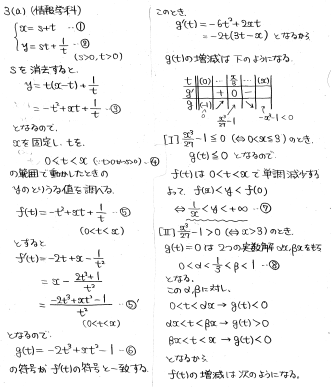 3(a)(情報学科)
{ x = s+t …①
y = st + 1/t …②
(s>0, t>0)
sを消去すると,
y = t(x-t) + 1/t
= -t²+xt+1/t …③
となるので.
xを固定し, tを.
0<t<x (∵t>0かつs>0) …④
の範囲で動かしたときの
yのとりうる値を調べる.
f(t) = -t²+xt+1/t …⑤
(0<t<x)
とすると
f'(t) = -2t+x-1/t²
= x - (2t³+1)/t²
= (-2t³+xt²-1)/t² …⑤'
(0<t<x)
となるので.
g(t) = -2t³+xt²-1 …⑥
の符号が f'(t)の符号と一致する.
このとき.
g'(t) = -6t²+2xt
= -2t(3t-x) となるから
g(t)の増減は下のようになる.
t (0) … x/3 … (x)
g' + 0 -
g (-1) ↗ ↘
x³/27-1 -x³-1<0
[I] x³/27-1≦0 (⇔0<x≦3)のとき.
g(t)≦0 となるので
f(t)は 0<t<xで単調減少する
よって f(x)<y<f(0)
⇔ 1/x<y<+∞ …⑦
[II] x³/27-1>0 (⇔x>3)のとき.
g(t)=0は2つの実数解αx,βxをもち
0<α<1/3<β<1 …⑧
となる.
このα,βに対し.
0<t<αx → g(t)<0
αx<t<βx → g(t)>0
βx<t<x → g(t)<0
となるから
f(t)の増減は次のようになる.